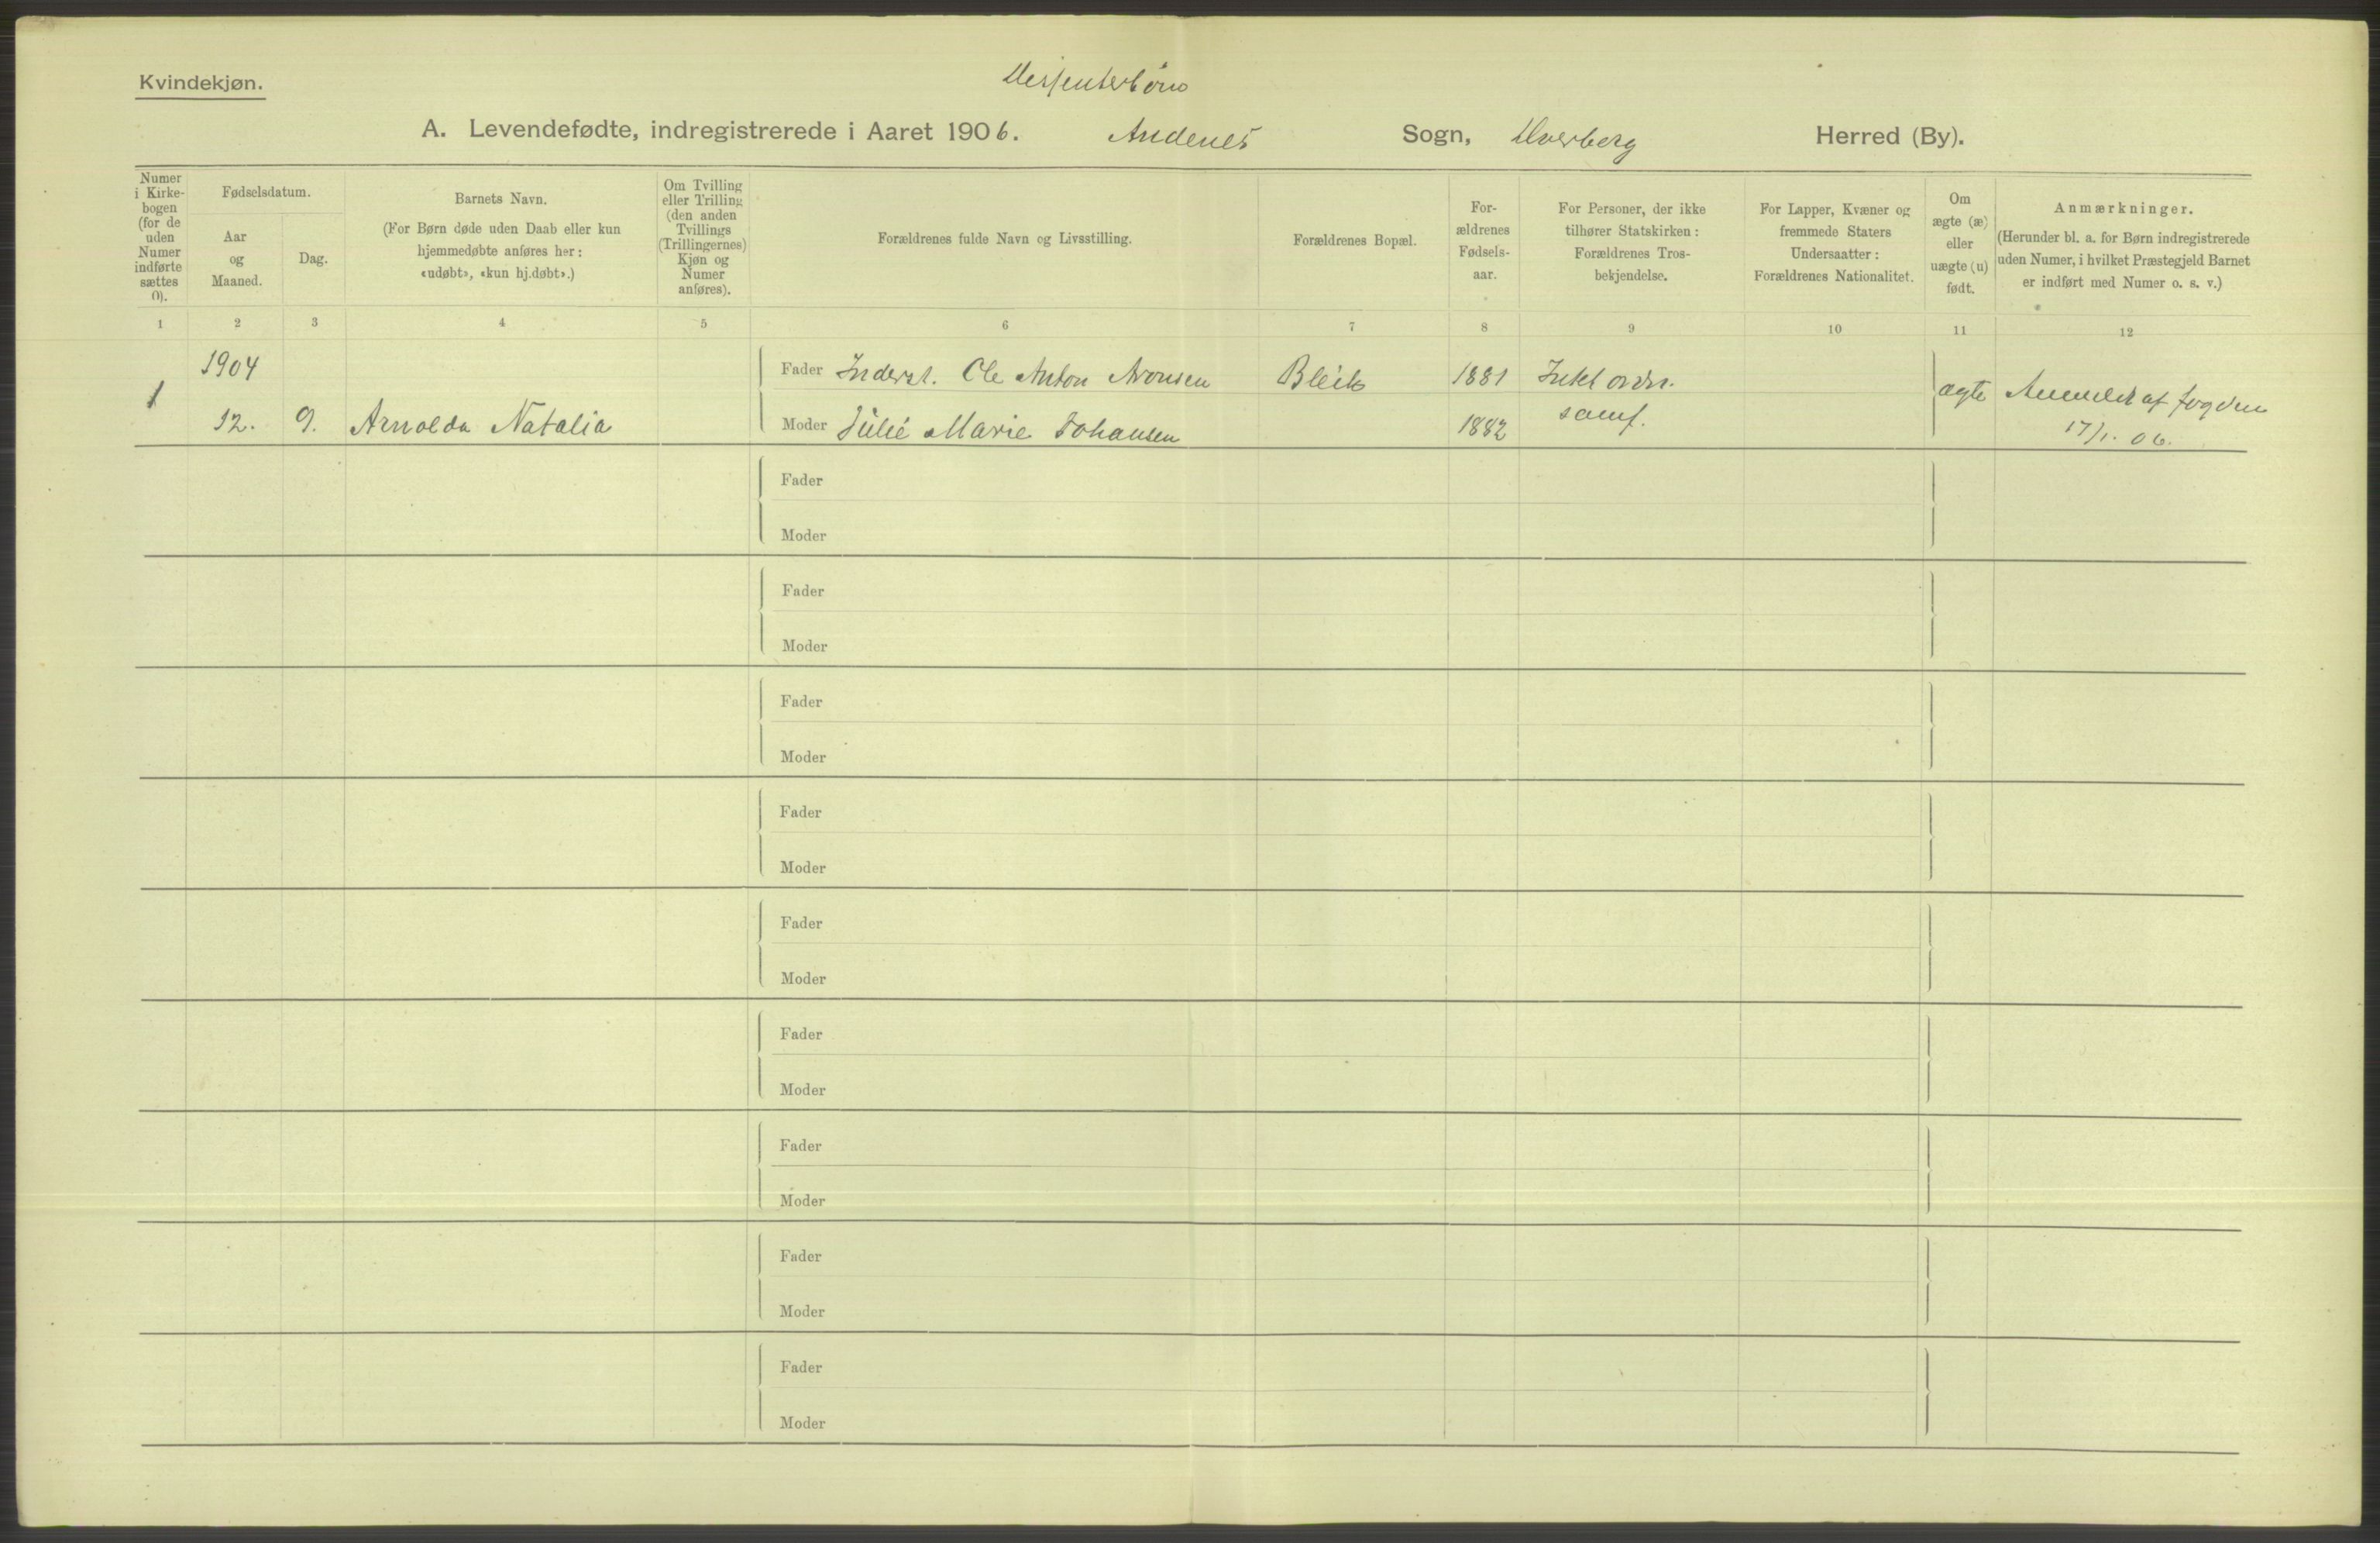 Kvindekjøn.
Dissenterbørn
A. Levendefødte, indregistrerede i Aaret 1906. Andenes Sogn, Dverberg Herred (By).
Numer
i Kirke-
bogen
(for de
uden
Numer
indførte
sættes
0).
Fødselsdatum.
Aar
og
Maaned.
Dag.
Barnets Navn.
(For Børn døde uden Daab eller kun
hjemmedøbte anføres her:
«udøbt», «kun hj.døbt».)
Om Tvilling
eller Trilling
(den anden
Tvillings
(Trillingernes)
Kjøn og
Numer
anføres).
Forældrenes fulde Navn og Livsstilling.
Forældrenes Bopæl.
For-
ældrenes
Fødsels-
aar.
For Personer, der ikke
tilhører Statskirken:
Forældrenes Tros-
bekjendelse.
For Lapper, Kvæner og
fremmede Staters
Undersaatter:
Forældrenes Nationalitet.
Om
ægte (æ)
eller
uægte (u)
født.
Anmærkninger.
(Herunder bl. a. for Børn indregistrerede
uden Numer, i hvilket Præstegjeld Barnet
er indført med Numer o. s. v.)
1 2 3 4 5 6 7 8 9 10 11 12
1904 Fader Inderst. Ole Anton Aronsen Bleik 1881
1 ægte Anmeldt af fogden
12. 9. Arnolda Natalia Moder Julie Marie Johansen 1882 samf.
17/1. 06.
Fader
Moder
Fader
Moder
Fader
Moder
Fader
Moder
Fader
Moder
Fader
Moder
Fader
Moder
Fader
Moder
Fader
Moder